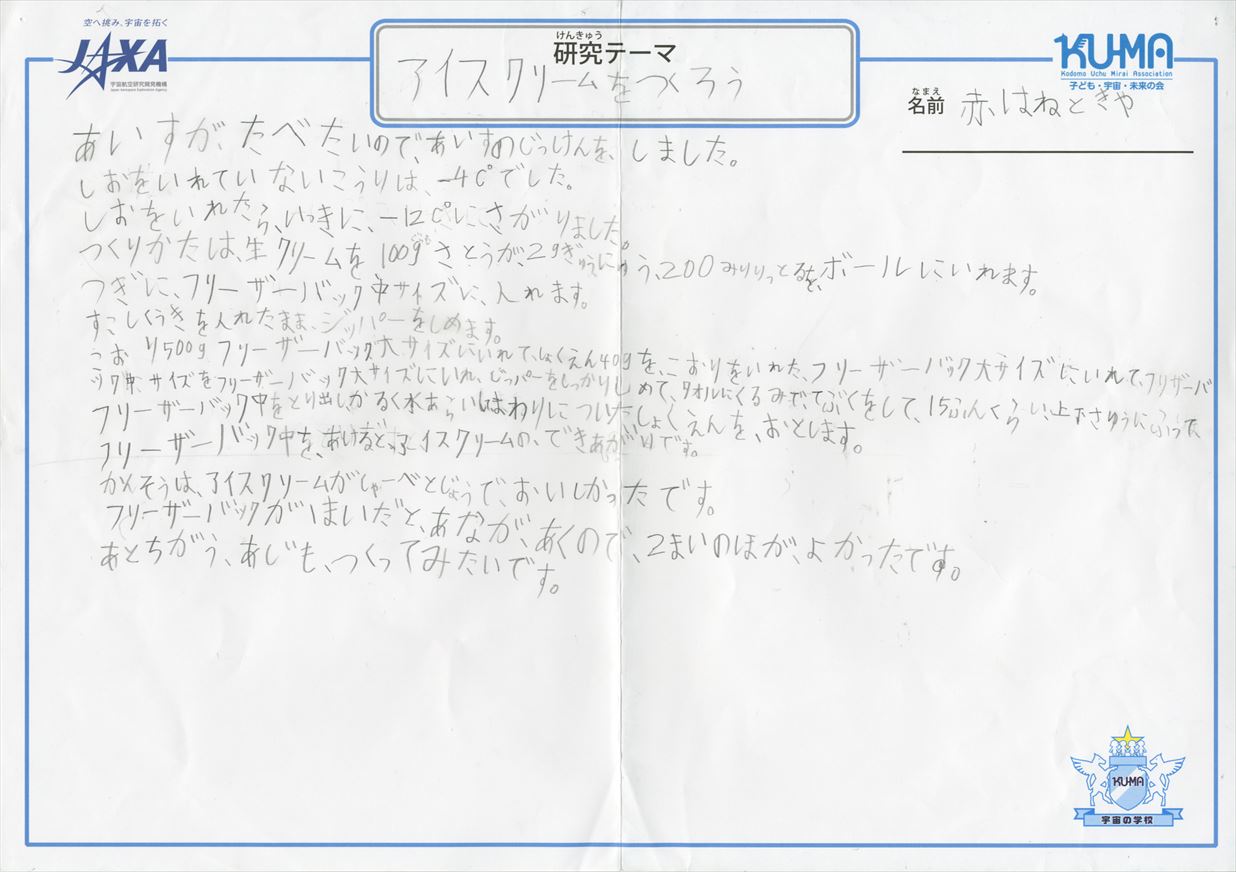 空へ挑み、宇宙を拓く
JAXA
宇宙航空研究開発機構
Japan Aerospace Exploration Agency
けんきゅう
研究テーマ
アイスクリームをつくろう
KU-MA
Kodomo Uchu Mirai Association
子ども・宇宙・未来の会
なまえ
名前 赤はねときや
あいすが、たべたいので、あいすのじっけんを、しました。
しおをいれていないこうりは、-4C°でした。
しおをいれたら、いっきに、-12C°にさがりました。
つくりかたは、生クリームを100gさとうが、2gぎゅうにゅう、200みりりっとるを、ボールにいれます。
つぎに、フリーザーバック中サイズに、入れます。
すこしくうきを入れたまま、ジッパーをしめます。
り500gフリーザーバック大サイズにいれて、しょくえん40gを、こおりをいれた、フリーザーバック大サイズにいれて、フリザーバ
ック中サイズをフリーザーバック大サイズにいれ、じっパーをしっかりしめて、タオルにくるみで、てぶくをして、15ふんくらい、上下さゆうにふった
フリーザーバック中をとり出し、かるく水あらいしまわりについたしょくえんを、おとします。
フリーザーバック中を、あけるとアイスクリームの、できあがりです。
かんそうは、アイスクリームがしゃーべとじょうで、おいしかったです。
フリーザーバックが1まいだと、あなが、あくので、2まいのほが、よかったです。
あとちがう、あじも、つくってみたいです。
KU-MA
宇宙の学校